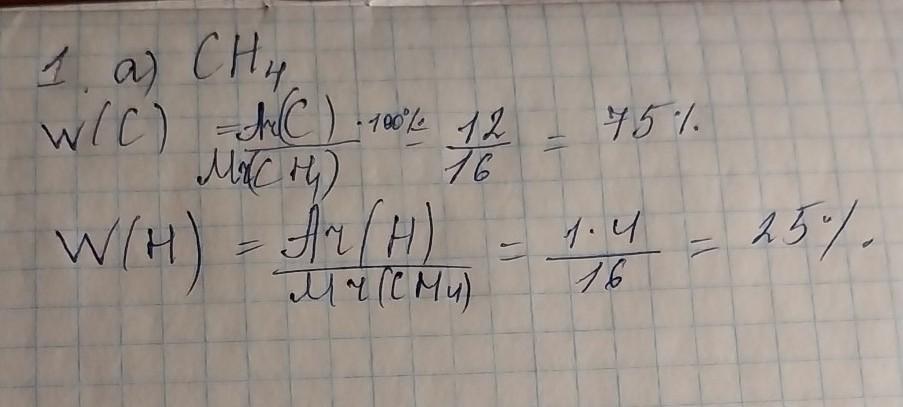 1. а) CH₄
W(C) = Ar(C) / Mr(CH₄) · 100% = 12/16 = 75%.
W(H) = Ar(H) / Mr(CH₄) = 1·4 / 16 = 25%.